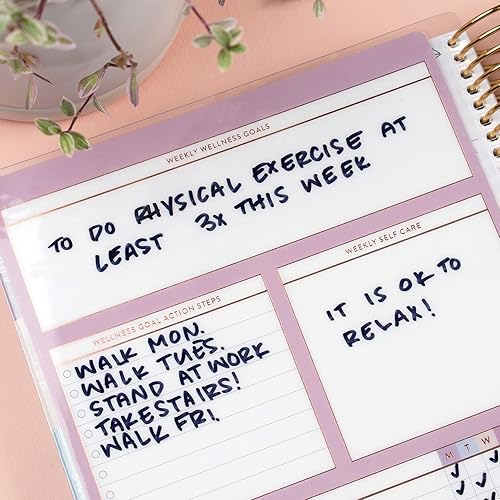 WEEKLY WELLNESS GOALS
TO DO PHYSICAL EXERCISE AT
LEAST 3X THIS WEEK
WELLNESS GOAL ACTION STEPS
WALK MON.
WALK TUES.
STAND AT WORK
TAKESTAIRS!
WALK FRI.
WEEKLY SELF CARE
IT IS OK TO
RELAX!
M T W